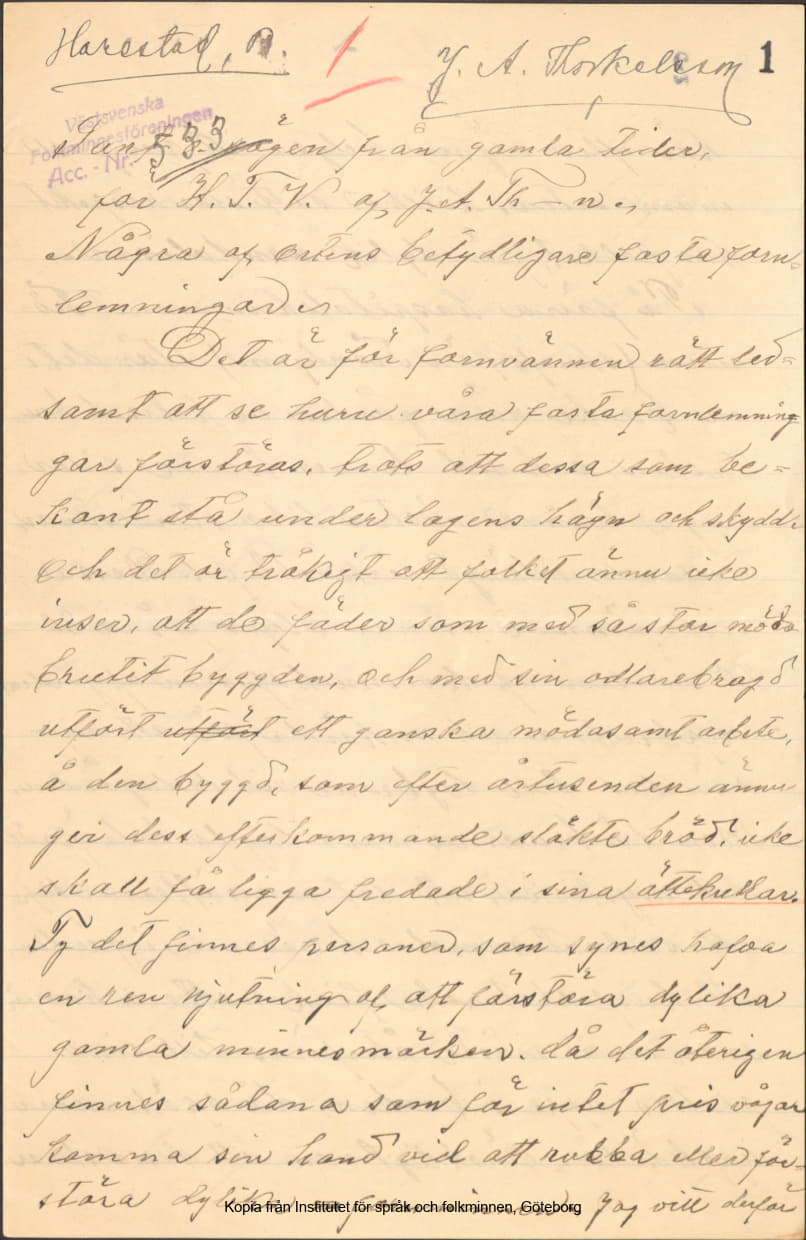 Harestad, B. 1 J. A. Thorkelsson 1
Västsvenska
Folkminnesföreningen
Acc. - Nr. 533
sägen från gamla tider,
för K. T. V. af J. A. Th—n.
Några af ortens betydligare fasta forn-
lemningar.
Det är för fornvännen rätt led=
samt att se huru våra fasta fornlemning
gar förstöras, trots att dessa som be=
kant stå under lagens hägn och skydd,
och det är tråkigt att folket ännu icke
inser, att de fäder som med så stor möda
brutit byggden, och med sin odlarebragd
utfört utfört ett ganska mödasamt arbete,
å den byggd, som efter årtusenden ännu
ger dess efterkommande släkte bröd, icke
skall få ligga fredade i sina ättekullar.
Ty det finnes personer, som synes hafva
en ren njutning af, att förstöra dylika
gamla minnesmärken. då det återigen
finnes sådana som för intet pris vågar
komma sin hand vid att rubba eller för-
störa dylika fornminnen. Jag vill derför
Kopia från Institutet för språk och folkminnen, Göteborg